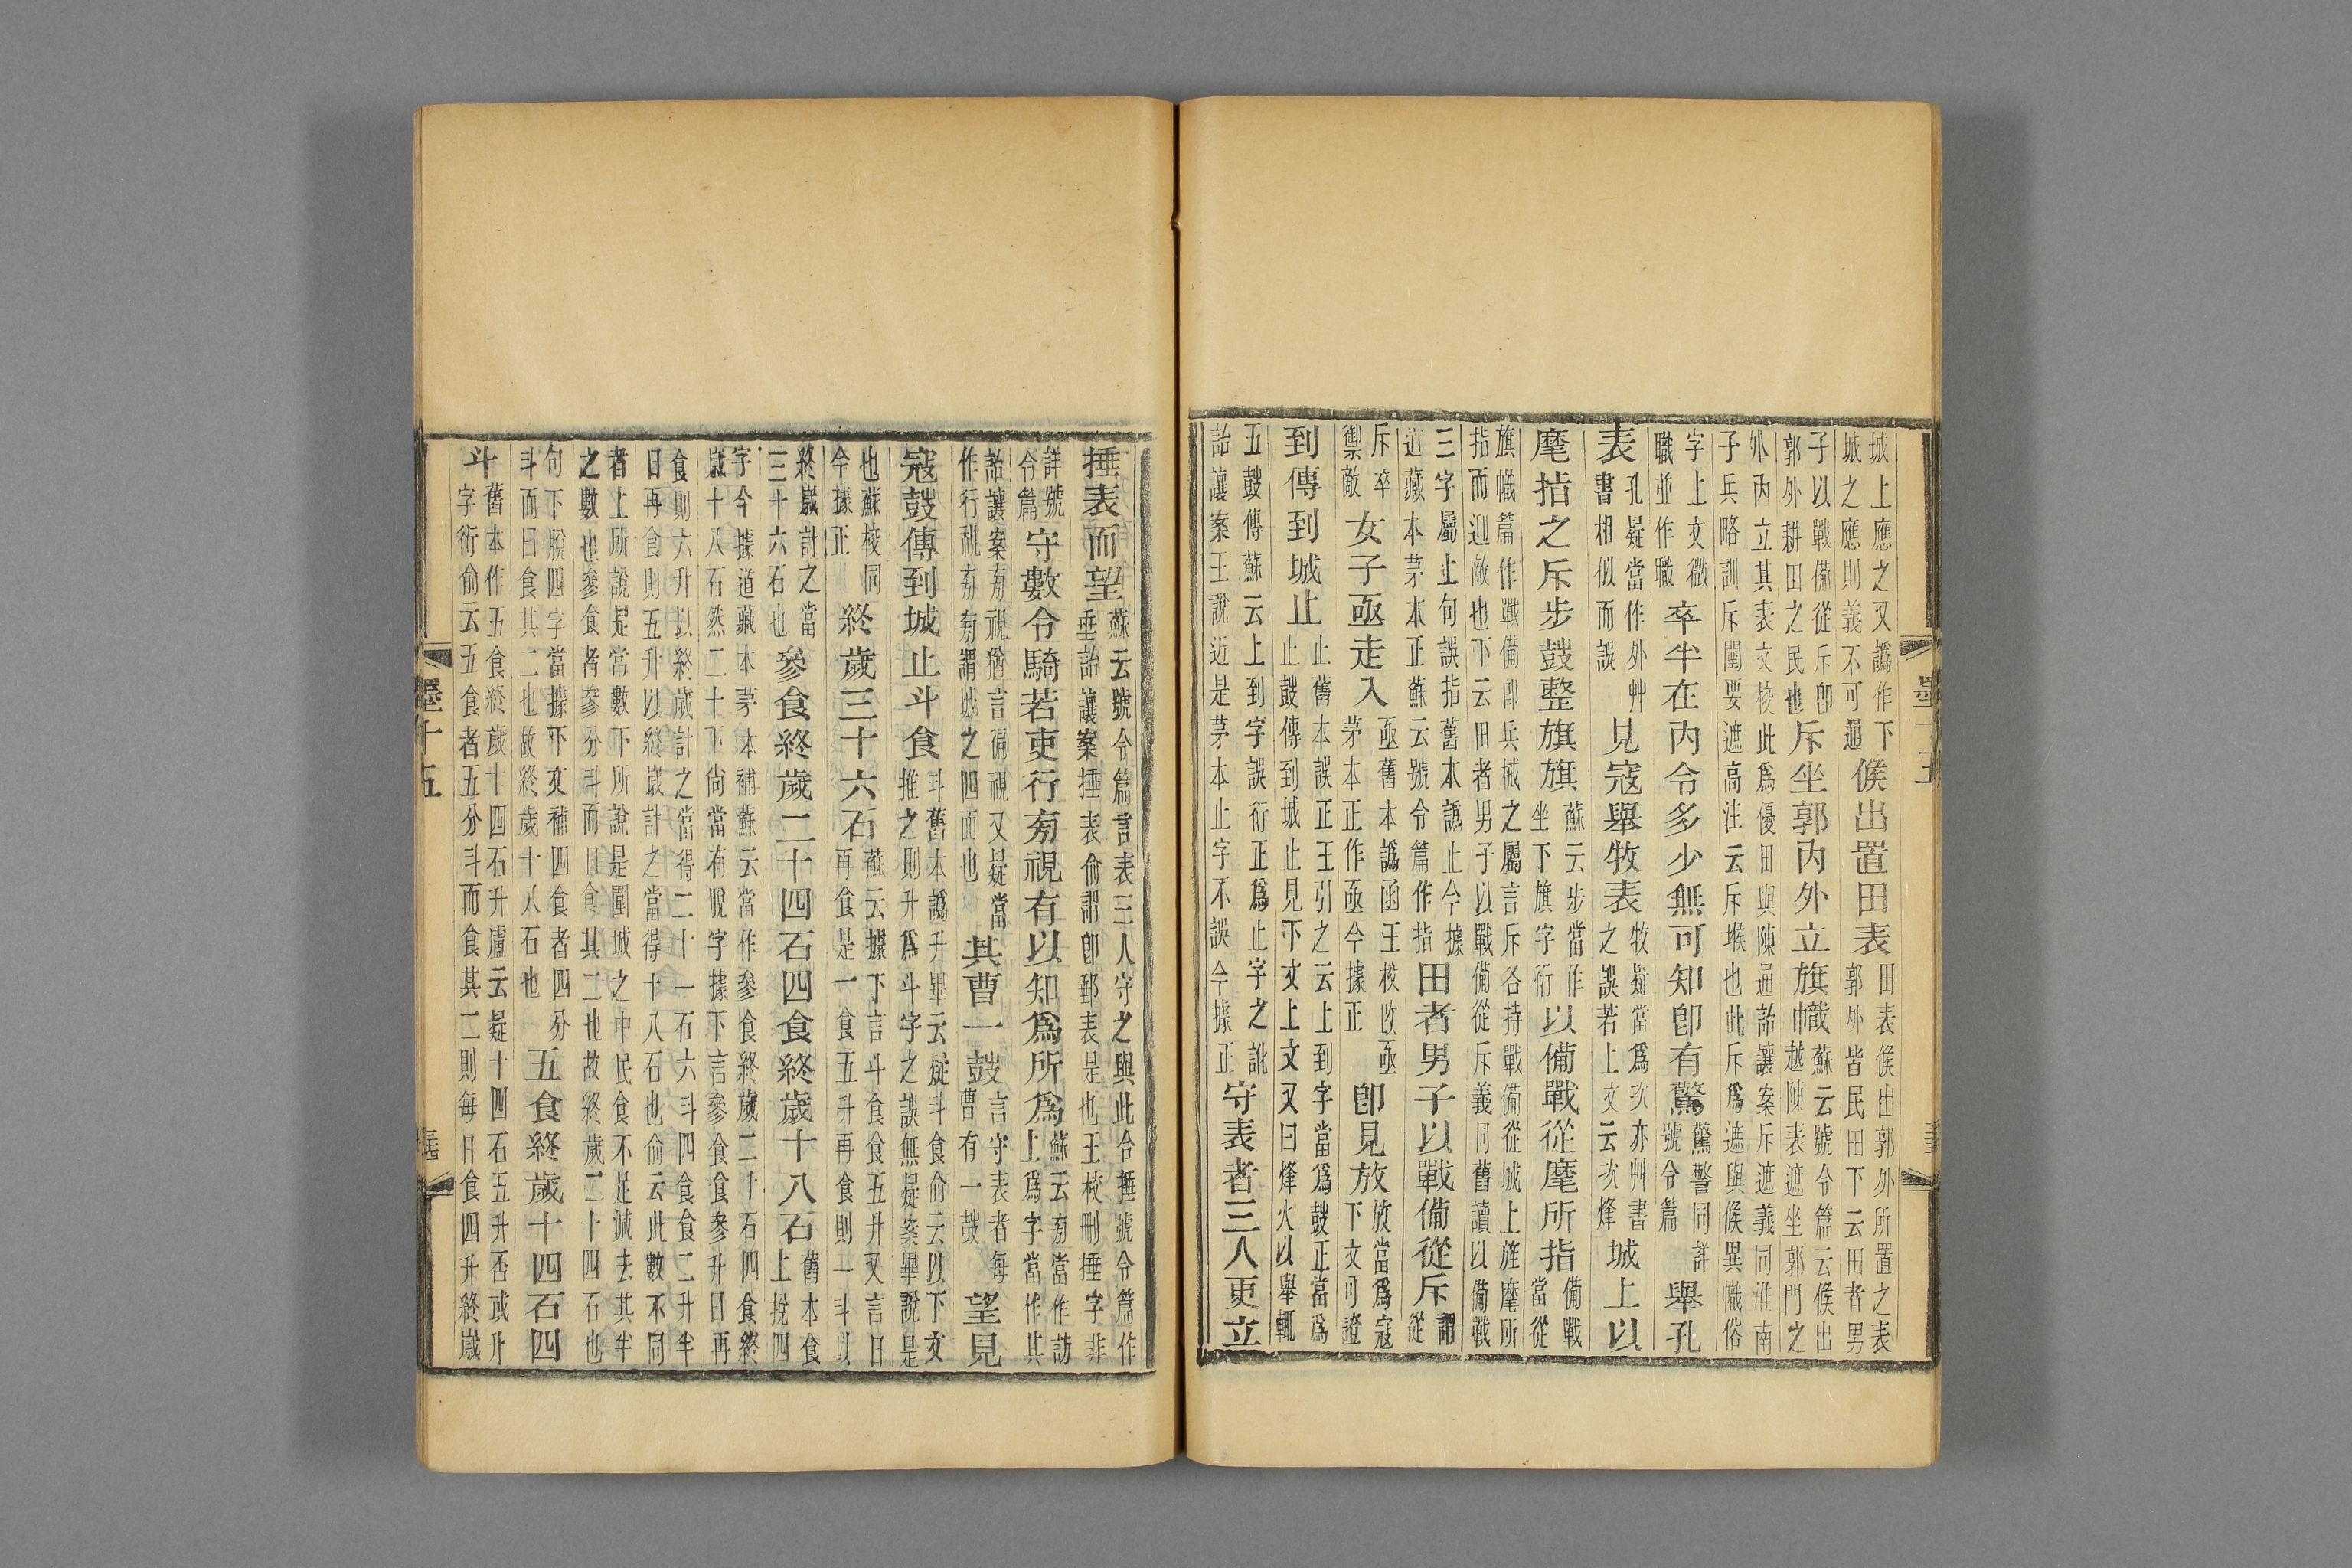 城上應之又譌作下
城之應則義不可通
候出置田表
田表候出郭外所置之表
郭外皆民田下云田者男
子以戰備從斥卽
郭外耕田之民也
斥坐郭內外立旗幟
蘇云號令篇云候出
越陳表遮坐郭門之
外內立其表文校此爲優田與陳通詒讓案斥遮義同淮南
子兵略訓斥闉要遮高注云斥堠也此斥爲遮與候異幟俗
字上文微
職並作職
卒半在內令多少無可知卽有驚
驚警同詳
號令篇
舉孔
表
孔疑當作外艸
書相似而誤
見寇舉牧表
牧疑當爲次亦艸書
之誤若上文云次烽
城上以
麾指之斥步鼓整旗旗
蘇云步當作
坐下旗字衍
以備戰從麾所指
備戰
當從
旗幟篇作戰備卽兵械之屬言斥各持戰備從城上旌麾所
指而迎敵也下云田者男子以戰備從斥義同舊讀以備戰
三字屬上句誤指舊本譌止今據
道藏本茅本正蘇云號令篇作指
田者男子以戰備從斥
謂
從
斥卒
禦敵
女子亟走入
亟舊本譌函王校改亟
茅本正作亟今據正
卽見放
放當爲寇
下文可證
到傳到城止
止舊本誤正王引之云上到字當爲鼓正當爲
止鼓傳到城止見下文上文又曰烽火以舉輒
五鼓傳蘇云上到字誤衍正爲止字之訛
詒讓案王說近是茅本止字不誤今據正
守表者三人更立
捶表而望
蘇云號令篇言表三人守之與此合捶號令篇作
垂詒讓案捶表俞謂卽郵表是也王校刪捶字非
詳號
令篇
守數令騎若吏行旁視有以知爲所爲
蘇云旁當作訪
上爲字當作其
詒讓案旁視猶言徧視又疑當
作行視旁旁謂城之四面也
其曹一鼓
言守表者每
曹有一鼓
望見
寇鼓傳到城止斗食
斗舊本譌升畢云疑斗食俞云以下文
推之則升爲斗字之誤無疑案畢說是
也蘇校同
今據正
終歲三十六石
蘇云據下言斗食食五升又言日
再食是一食五升再食則一斗以
終歲計之當
三十六石也
參食終歲二十四石四食終歲十八石
舊本食
上挩四
字今據道藏本茅本補蘇云當作參食終歲二十石四食終
歲十八石然二十下尙當有脫字據下言參食食參升日再
食則六升以終歲計之當得二十一石六斗四食食二升半
日再食則五升以終歲計之當得十八石也俞云此數不同
者上所說是常數下所說是圍城之中民食不足減去其半
之數也參食者參分斗而日食其二也故終歲二十四石也
句下脫四字當據下文補四食者四分
斗而日食其二也故終歲十八石也
五食終歲十四石四
斗
舊本作五食終歲十四石升盧云疑十四石五升否或升
字衍俞云五食者五分斗而食其二則每日食四升終歲
墨十五